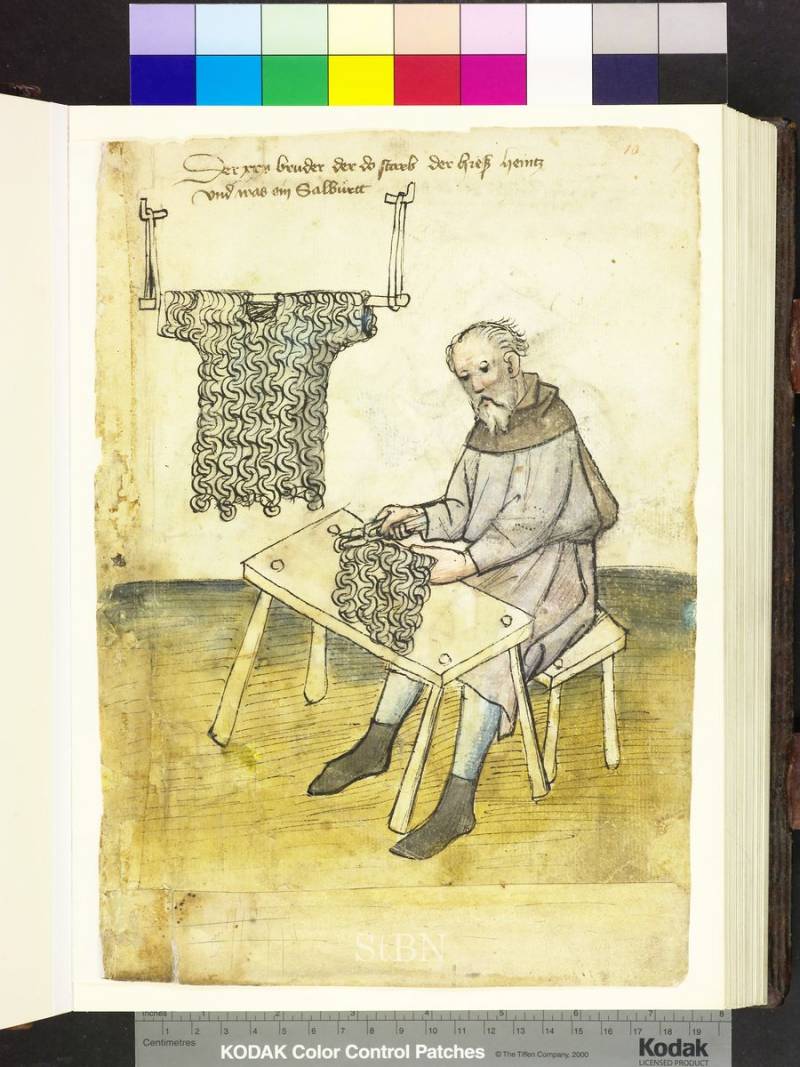 10
Der xxs bruder der do starb der hieß heintz
vnd was ein Salwürtt
StBN
Inches 1 2 3 4 5 6 7 8
Centimetres 1 2 3 4 5 6 7 8 9 10 11 12 13 14 15 16 17 18 19
KODAK Color Control Patches © The Tiffen Company, 2000 Kodak
LICENSED PRODUCT